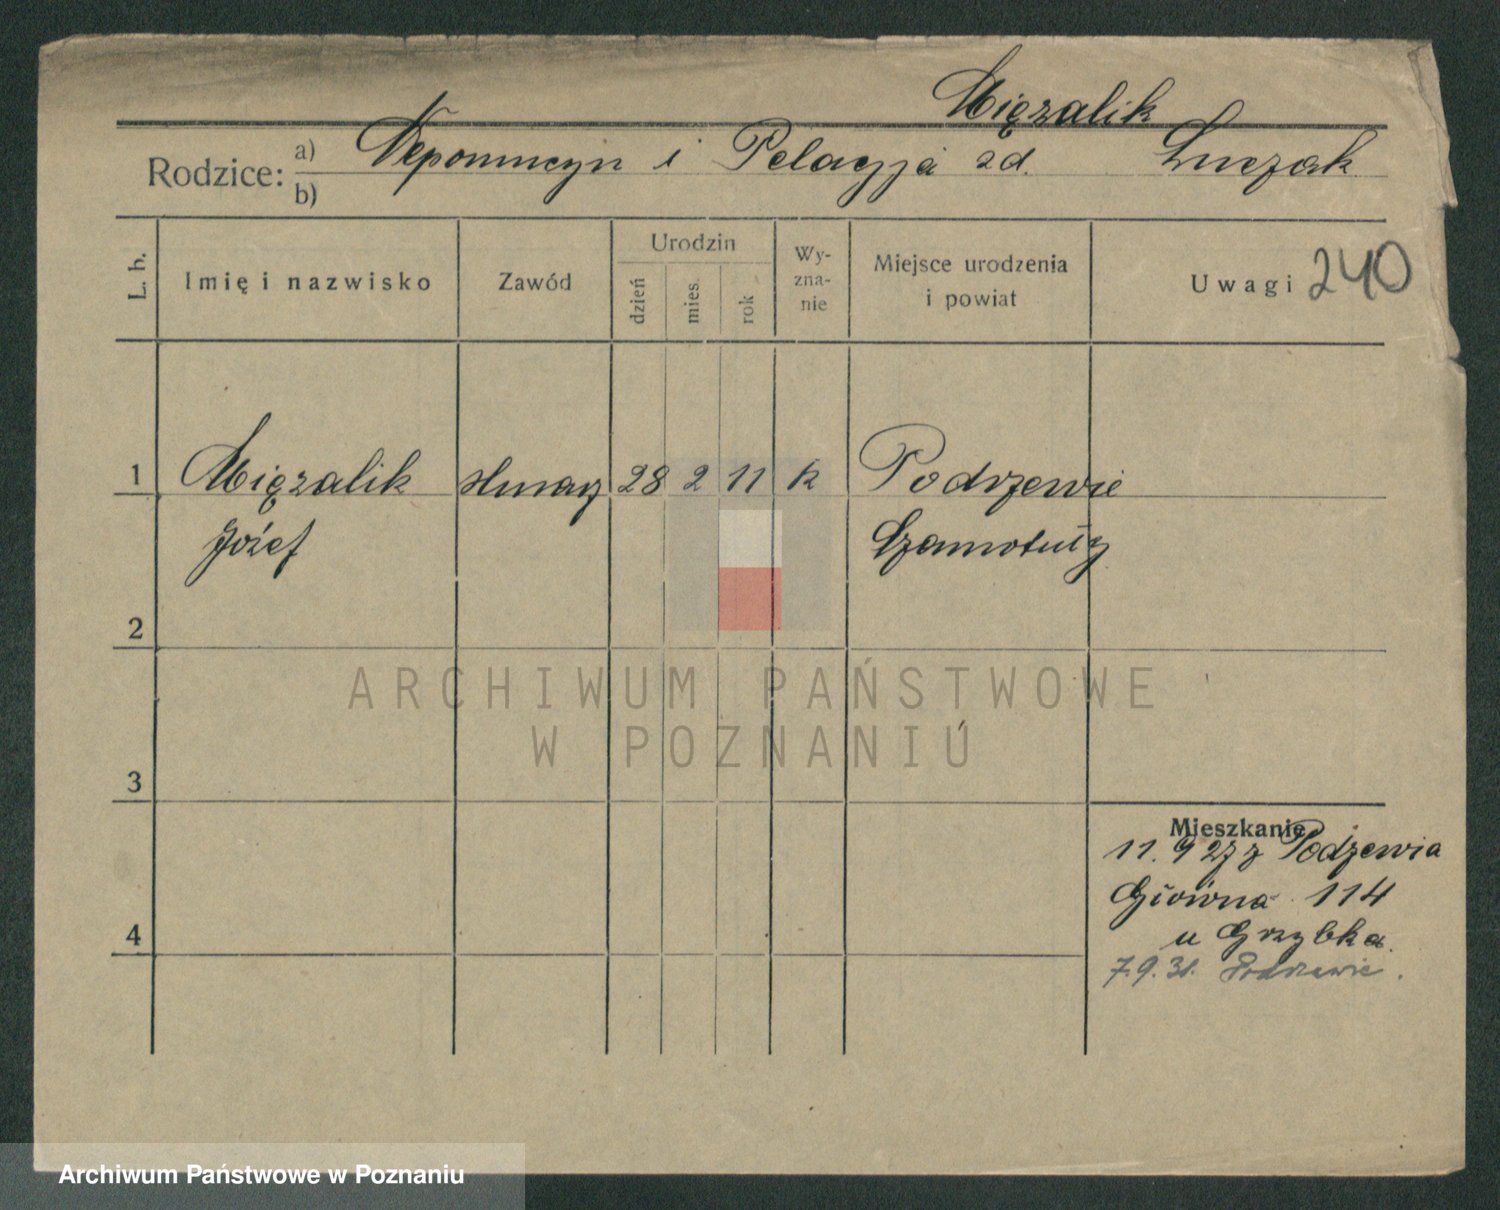 Mięzalik
Rodzice: a) b) Nepomucyn i Pelagja zd. Łuczak
L. b.
Imię i nazwisko
Zawód
Urodzin
dzień
mies.
rok
Wy-
zna-
nie
Miejsce urodzenia
i powiat
Uwagi 240
1 Mięzalik ślusarz 28 2 11 k Podrzewie
Józef Szamotuły
2
3
4
Mieszkanie
11. 9 27 z Podżewia
Główna 114
u Grzybka.
7.9.31. Podrzewie.
ARCHIWUM PAŃSTWOWE
W POZNANIU
Archiwum Państwowe w Poznaniu